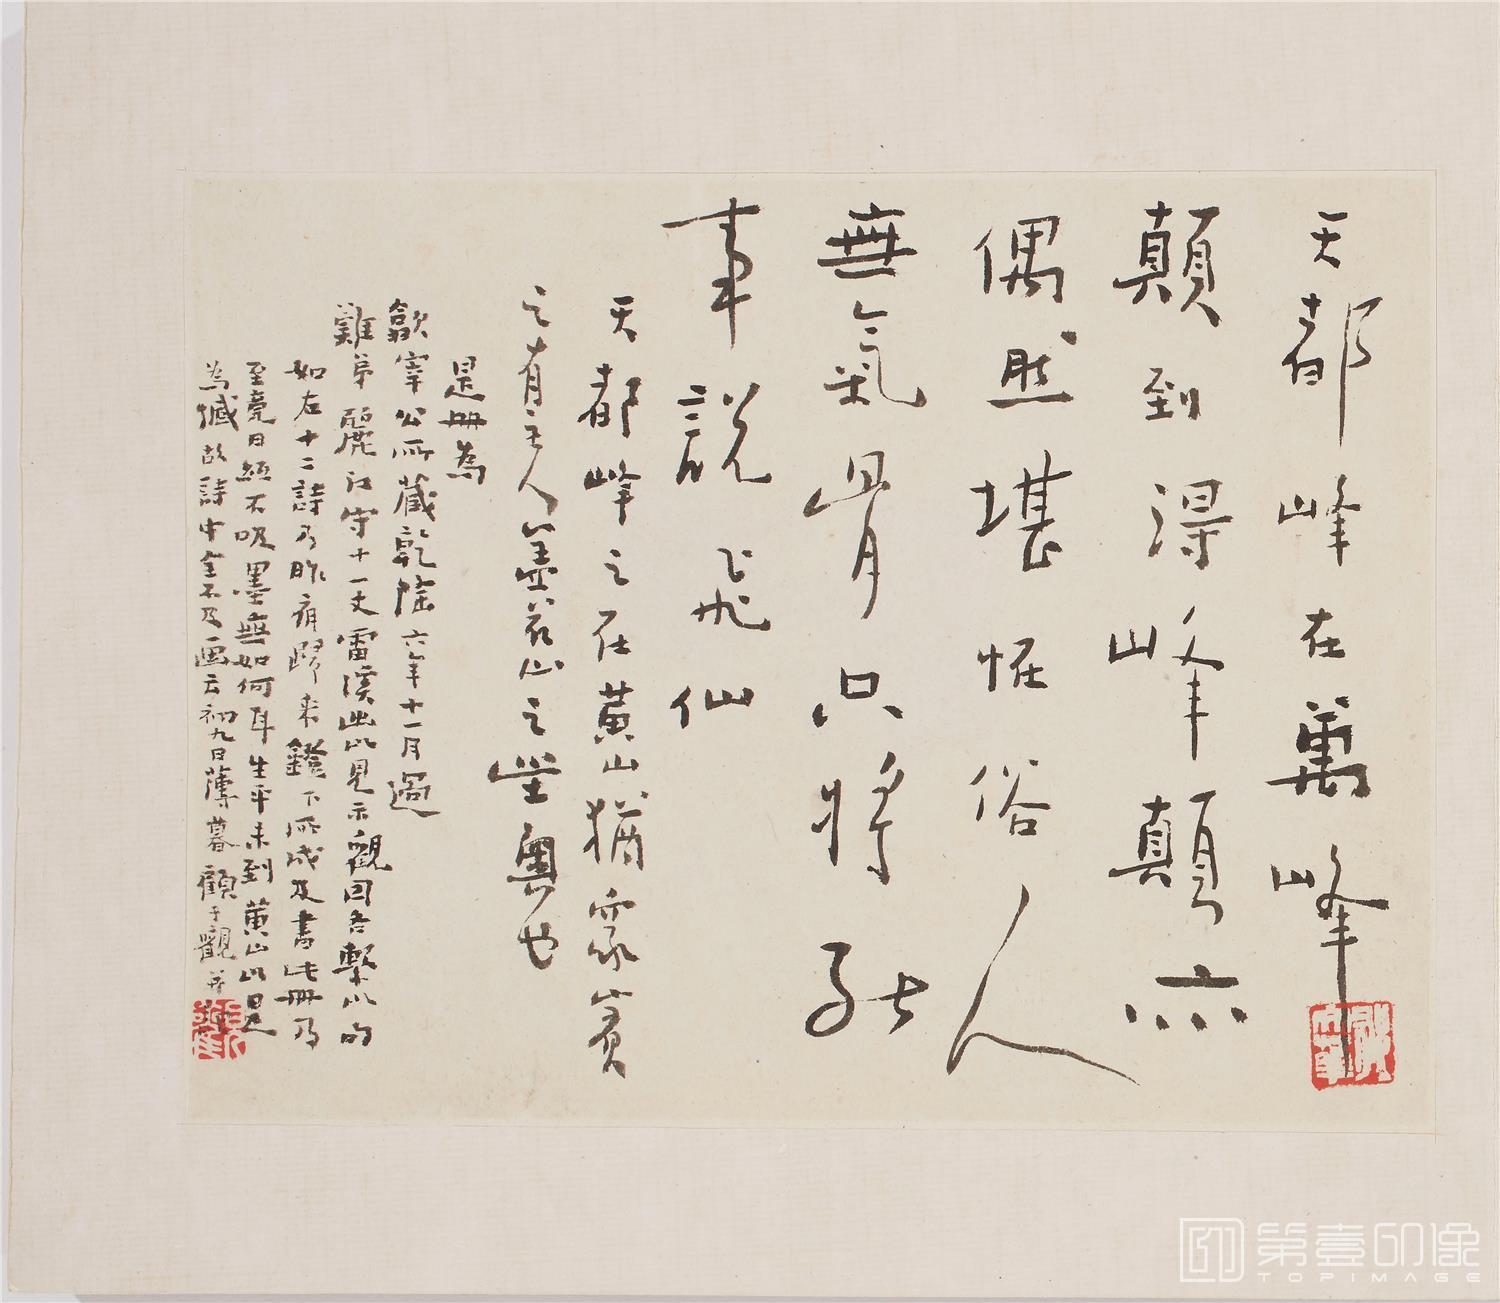 天都峰在萬峰
顛到得峰顛亦
偶然堪恠俗人
無氣骨只將能
事說飛仙
天都峰之在黃山猶家賓
之有主人蓋衣心之堂奧也
是冊為
歙宰公所藏乾隆六年十一月過
難弟麗江守十一丈雷溪出以見示觀因各繫以句
如右十二詩乃昨宵歸來鐙下所成及書此冊乃
至竟日紙不吸墨無如何耳生平未到黃山以是
為憾故詩中全不及画云初九日薄暮顧于觀並
第壹印像
TOPIMAGE